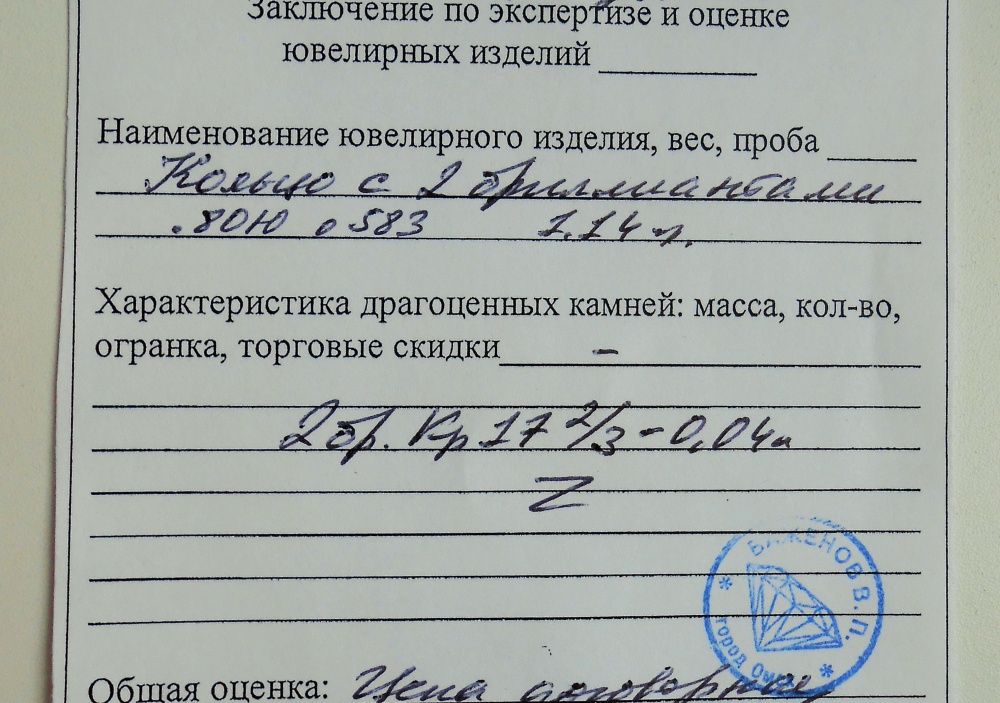 Заключение по экспертизе и оценке
ювелирных изделий
Наименование ювелирного изделия, вес, проба
Кольцо с 2 бриллиантами
583 1.14 г.
Характеристика драгоценных камней: масса, кол-во,
огранка, торговые скидки -
2 бр. Кр 17 2/3 - 0,04
Z
БАЖЕНОВ В. П.
город Омск
Общая оценка: Цена договорная